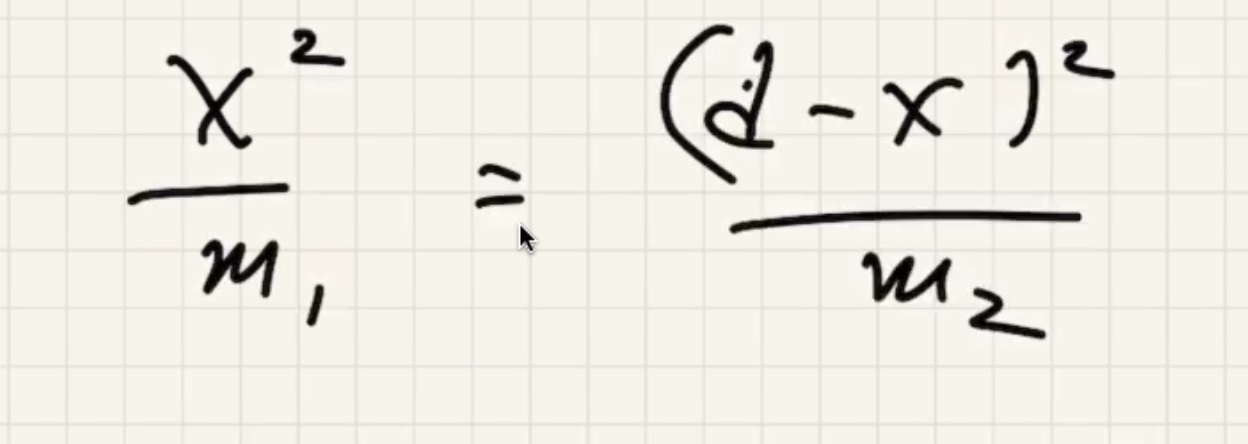 x²/m₁ = (d - x)²/m₂